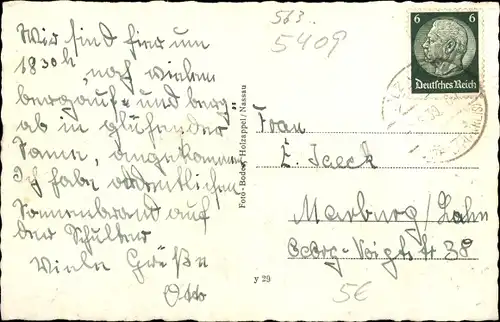 Wir sind hier um
18 30 h nach vielem
bergauf- und berg
ab in glühender
Sonne, angekommen
Ich habe ordentlichen
Sonnenbrand auf
der Schulter
Viele Grüße
Otto
Foto-Bodor, Holzappel/Nassau
y 29
563
5409
6 6
Deutsches Reich
Frau
E. Jaeck
Marburg/Lahn
Georg-Voigtstr 38
5€